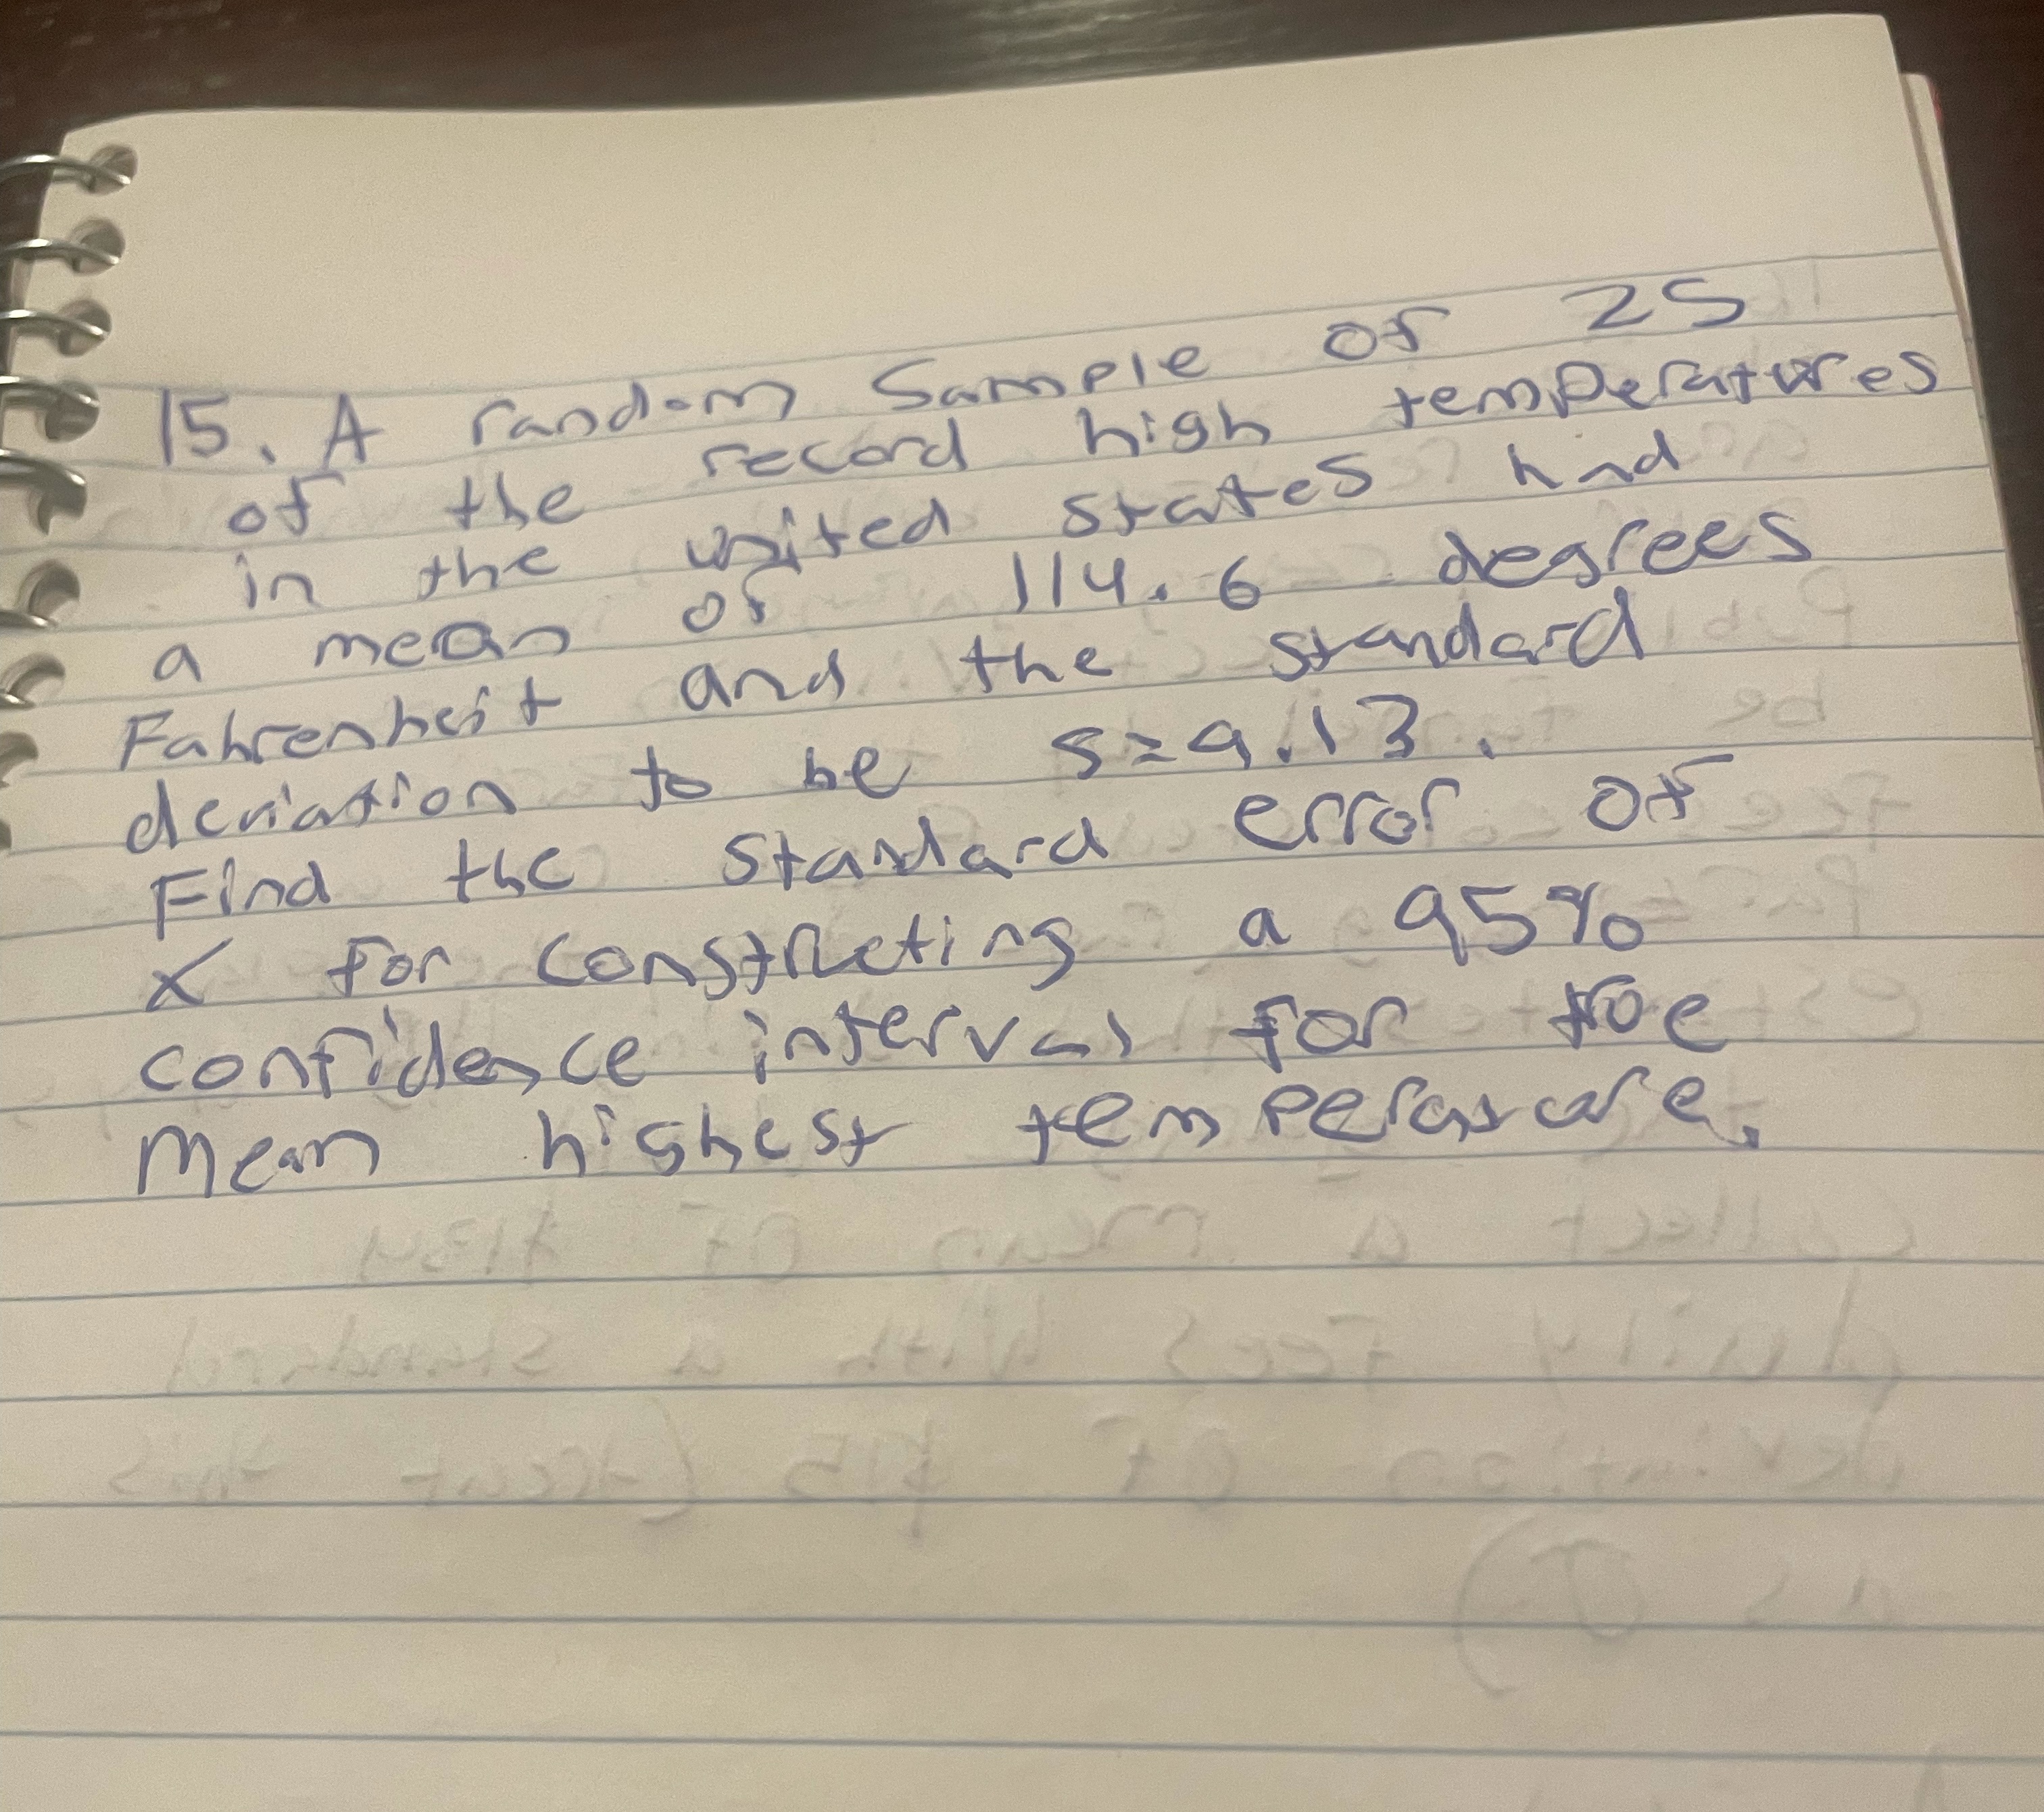 15. A random Sample of 25
of the record high temperatures
in the united states had
a mean of 114.6 degrees
Fahrenheit and the standard
deviation to be s=9.13.
Find the standard error of
x for constructing a 95%
confidence interval for true
Mean highest temperature.